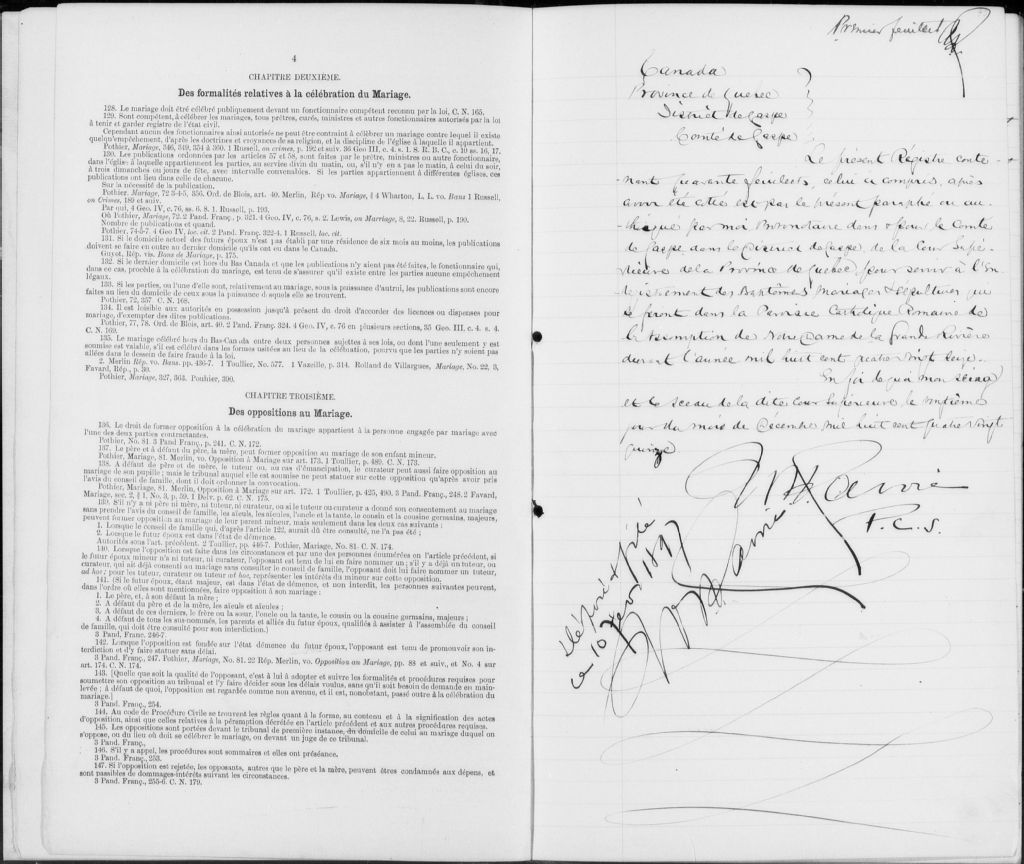 4
CHAPITRE DEUXIÈME.
Des formalités relatives à la célébration du Mariage.
128. Le mariage doit être célébré publiquement devant un fonctionnaire compétent reconnu par la loi, C. N. 165.
129. Sont compétents, à célébrer les mariages, tous prêtres, curés, ministres et autres fonctionnaires autorisés par la loi
à tenir et garder registre de l'état civil.
Cependant aucun des fonctionnaires ainsi autorisés ne peut être contraint à célébrer un mariage contre lequel il existe
quelqu'empêchement, d'après les doctrines et croyances de sa religion, et la discipline de l'église à laquelle il appartient.
Pothier, Mariage, 346, 349, 354 à 360. 1 Russell, on crimes, p. 192 et suiv. 36 Geo III, c. 4. s. 1. S. R. B. C., c. 10 ss. 16, 17.
130. Les publications ordonnées par les articles 57 et 58, sont faites par le prêtre, ministre ou autre fonctionnaire,
dans l'église à laquelle appartiennent les parties, au service divin du matin, ou, s'il n'y en a pas le matin, à celui du soir,
à trois dimanches ou jours de fête, avec intervalle convenables. Si les parties appartiennent à différentes églises, ces
publications ont lieu dans celle de chacune.
Sur la nécessité de la publication.
Pothier, Mariage, 72 3-4-5, 356. Ord. de Blois, art. 40. Merlin, Rép vo. Mariage, § 4 Wharton, L. L. vo. Bans 1 Russell,
on Crimes, 189 et suiv.
Par qui, 4 Geo. IV, c. 76, ss. 6, 8. 1. Russell, p. 193.
Où Pothier, Mariage, 72. 2 Pand. Franç. p. 321. 4 Geo. IV, c. 76, s. 2. Lewis, on Marriage, 8, 22. Russell, p. 190.
Nombre de publications et quand.
Pothier, 74-5-7. 4 Geo IV, loc. cit. 2 Pand. Franç. 322-4. 1 Russell, loc. cit.
131. Si le domicile actuel des futurs époux n'est pas établi par une résidence de six mois au moins, les publications
doivent se faire en outre au dernier domicile qu'ils ont eu dans le Canada.
Guyot, Rép. vis. Bans de Mariage, p. 175.
132. Si le dernier domicile est hors du Bas Canada et que les publications n'y aient pas été faites, le fonctionnaire qui,
dans ce cas, procède à la célébration du mariage, est tenu de s'assurer qu'il existe entre les parties aucune empêchement
légaux.
133. Si les parties, ou l'une d'elles sont, relativement au mariage, sous la puissance d'autrui, les publications sont encore
faites au lieu du domicile de ceux sous la puissance desquels elle se trouvent.
Pothier, 72, 357. C. N. 168.
134. Il est loisible aux autorités en possession jusqu'à présent du droit d'accorder des licences ou dispenses pour
mariage, d'exempter des dites publications.
Pothier, 77, 78. Ord. de Blois, art. 40. 2 Pand. Franç. 324. 4 Geo. IV, c. 76 en plusieurs sections, 35 Geo. III, c. 4. s. 4.
C. N. 169.
135. Le mariage célébré hors du Bas-Canada entre deux personnes sujettes à ses lois, ou dont l'une seulement y est
soumise est valable, s'il est célébré dans les formes usitées au lieu de la célébration, pourvu que les parties n'y soient pas
allées dans le dessein de faire fraude à la loi.
2. Merlin Rép. vo. Bans. pp. 436-7. 1 Toullier, No. 577. 1 Vazeille, p. 314. Rolland de Villargues, Mariage, No. 22, 3,
Favard, Rép., p. 39.
Pothier, Mariage, 327, 363. Pouhier, 390.
CHAPITRE TROISIÈME.
Des oppositions au Mariage.
136. Le droit de former opposition à la célébration du mariage appartient à la personne engagée par mariage avec
l'une des deux parties contractantes.
Pothier, No. 81. 3 Pand Franç., p. 241. C. N. 172.
137. Le père et à défaut du père, la mère, peut former opposition au mariage de son enfant mineur.
Pothier, Mariage, 81. Merlin, vo. Opposition à Mariage sur art. 173. 1 Toullier, p. 489. C. N. 173.
138. A défaut de père et de mère, le tuteur ou, au cas d'émancipation, le curateur peut aussi faire opposition au
mariage de son pupille ; mais le tribunal auquel elle est soumise ne peut statuer sur cette opposition qu'après avoir pris
l'avis du conseil de famille, dont il doit ordonner la convocation.
Pothier, Mariage, 81. Merlin, Opposition à Mariage sur art. 172. 1 Toullier, p. 425, 490, 3 Pand. Franç., 248. 2 Favard,
Mariage, sec. 2, § 1, No. 3, p. 59. 1 Delv. p. 62. C. N. 175.
139. S'il n'y a ni père ni mère, ni tuteur, ni curateur, ou si le tuteur ou curateur a donné son consentement au mariage
sans prendre l'avis du conseil de famille, les aïeuls, les aïeules, l'oncle et la tante, le cousin et la cousine germains, majeurs,
peuvent former opposition au mariage de leur parent mineur, mais seulement dans les deux cas suivants :
1. Lorsque le conseil de famille qui, d'après l'article 122, aurait dû être consulté, ne l'a pas été ;
2. Lorsque le futur époux est dans l'état de démence.
Autorités sous l'art. précédent. 2 Toullier, pp. 446-7. Pothier, Mariage, No. 81- C. N. 174.
140. Lorsque l'opposition est faite dans les circonstances et par une des personnes énumérées en l'article précédent, si
le futur époux mineur n'a ni tuteur, ni curateur, l'opposant est tenu de lui en faire nommer un ; s'il y a déjà un tuteur, ou
curateur, qui ait déjà consenti au mariage sans consulter le conseil de famille, l'opposant doit lui faire nommer un tuteur,
ad hoc ; pour les tuteur, curateur ou tuteur ad hoc, représenter les intérêts du mineur sur cette opposition.
141. (Si le futur époux, étant majeur, est dans l'état de démence, et non interdit, les personnes suivantes peuvent,
dans l'ordre où elles sont mentionnées, faire opposition à son mariage :
1. Le père, et, à son défaut la mère ;
2. A défaut du père et de la mère, les aïeuls et aïeules ;
3. A défaut de ces derniers, le frère ou la sœur, l'oncle ou la tante, le cousin ou la cousine germains, majeurs ;
4. A défaut de tous les sus-nommés, les parents et alliés du futur époux, qualifiés à assister à l'assemblée du conseil
de famille, qui doit être consulté pour son interdiction.)
3 Pand. Franc. 246-7.
142. Lorsque l'opposition est fondée sur l'état démence du futur époux, l'opposant est tenu de promouvoir son in-
terdiction et d'y faire statuer sans délai.
3 Pand. Franç., 247. Pothier, Mariage, No. 81. 22 Rép. Merlin, vo. Opposition au Mariage, pp. 88 et suiv., et No. 4 sur
art. 174. C. N. 174.
143. [Quelle que soit la qualité de l'opposant, c'est à lui à adopter et suivre les formalités et procédures requises pour
soumettre son opposition au tribunal et l'y faire décider sous les délais voulus, sans qu'il soit besoin de demande en main-
levée ; à défaut de quoi, l'opposition est regardée comme non avenue, et il est, nonobstant, passé outre à la célébration du
mariage.]
3 Pand. Franç., 254.
144. Au code de Procédure Civile se trouvent les règles quant à la forme, au contenu et à la signification des actes
d'opposition, ainsi que celles relatives à la péremption décrétée en l'article précédent et aux autres procédures requises.
145. Les oppositions sont portées devant le tribunal de première instance, du domicile de celui au mariage duquel on
s'oppose, ou du lieu où doit se célébrer le mariage, ou devant un juge de ce tribunal.
3 Pand. Franç.,
146. S'il y a appel, les procédures sont sommaires et elles ont préséance.
3 Pand. Franç., 253.
147. Si l'opposition est rejetée, les opposants, autres que le père et la mère, peuvent être condamnés aux dépens, et
sont passibles de dommages-intérêts suivant les circonstances.
3 Pand. Franç., 255-6. C. N. 179.
Premier feuillet
Canada
Province de Quebec
District de Gaspe
Comté de Gaspe
Le present Régistre conte-
nant quarante feuillets, celui ci compris, apres
avoir été cotés est par le present paraphé ou au-
thiqué par moi Protonotaire dans & pour le Comté
de Gaspe dans le District de Gaspe, de la Cour Supé-
rieure de la Province de Quebec, pour servir à l'En
régistrement des Baptêmes Mariages & sépultures qui
se feront dans la Paroisse Catholique Romaine de
l'Assomption de Notre Dame de la Grande Rivière
durant l'année mil huit cent quatre vingt seize.
En foi de quoi mon seing
et le sceau de la dite Cour Supérieure le vingtième
jour du mois de Décembre mil huit cent quatre vingt
quinze
P. C. S.
Déposé
ce 10 Fevr 1897